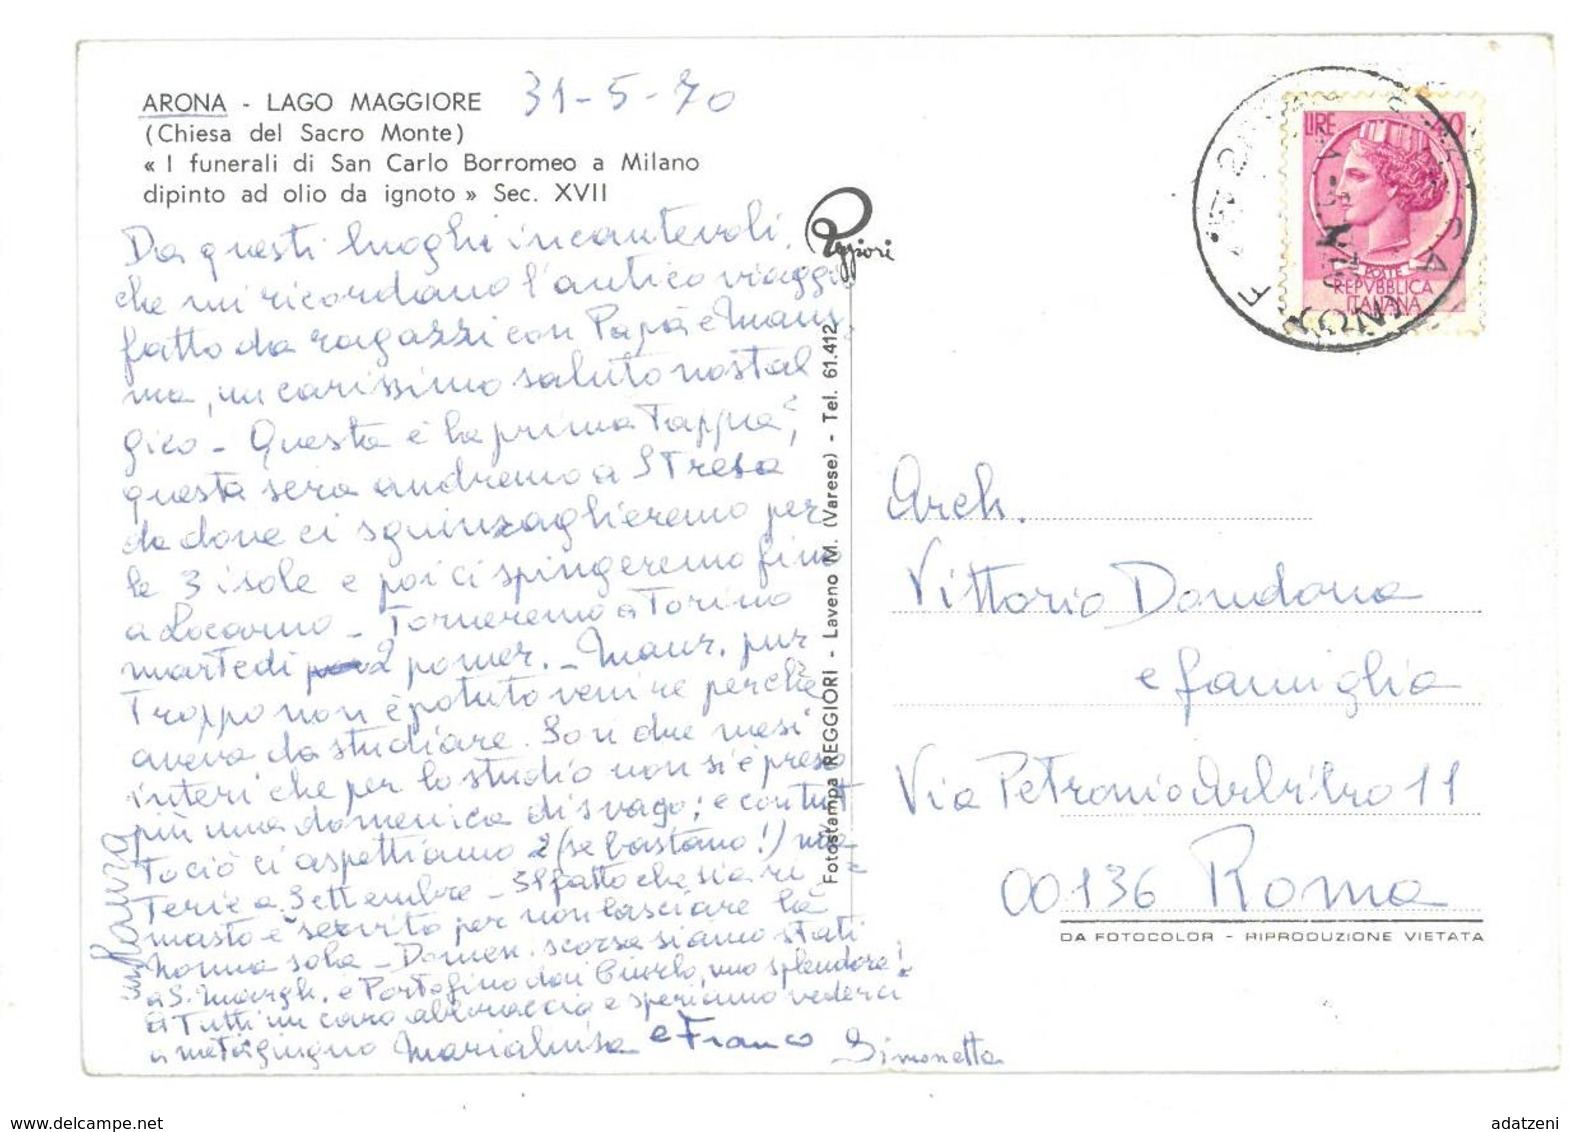 ARONA - LAGO MAGGIORE 31-5-70
(Chiesa del Sacro Monte)
« I funerali di San Carlo Borromeo a Milano
dipinto ad olio da ignoto » Sec. XVII
Da questi luoghi incantevoli,
che mi ricordano l'antico viaggio
fatto da ragazzi con Papà e Mam
ma, un carissimo saluto nostal
gico - Questa è la prima Tappa,
questa sera andremo a STresa
da dove ci sguinzaglieremo per
le 3 isole e poi ci spingeremo fino
a Locarno - Torneremo a Torino
martedi 2 pomer. - Maur. pur
Troppo non è potuto venire perchè
aveva da studiare. Son due mesi
interi che per lo studio non si è preso
più una domenica di svago; e con tutt
To ciò ci aspettiamo 2 (se bastano!) ma
Terie a Settembre - Il fatto che sia ri
masto è servito per non lasciare la
Nonna sola - Domen. scorsa siamo stati
a S. Margh. e Portofino uno splendore!
a Tutti un caro abbraccio e speriamo vederci
a metà giugno Marialuisa e Franco Simonetta
Reggiori
Fotostampa REGGIORI - Laveno M. (Varese) - Tel. 61.412
LIRE 40
POSTE
REPVBBLICA
ITALIANA
Arch.
Vittorio Dandona
e famiglia
Via Petronio Arbitro 11
00136 Roma
DA FOTOCOLOR - RIPRODUZIONE VIETATA
www.delcampe.net
adatzeni